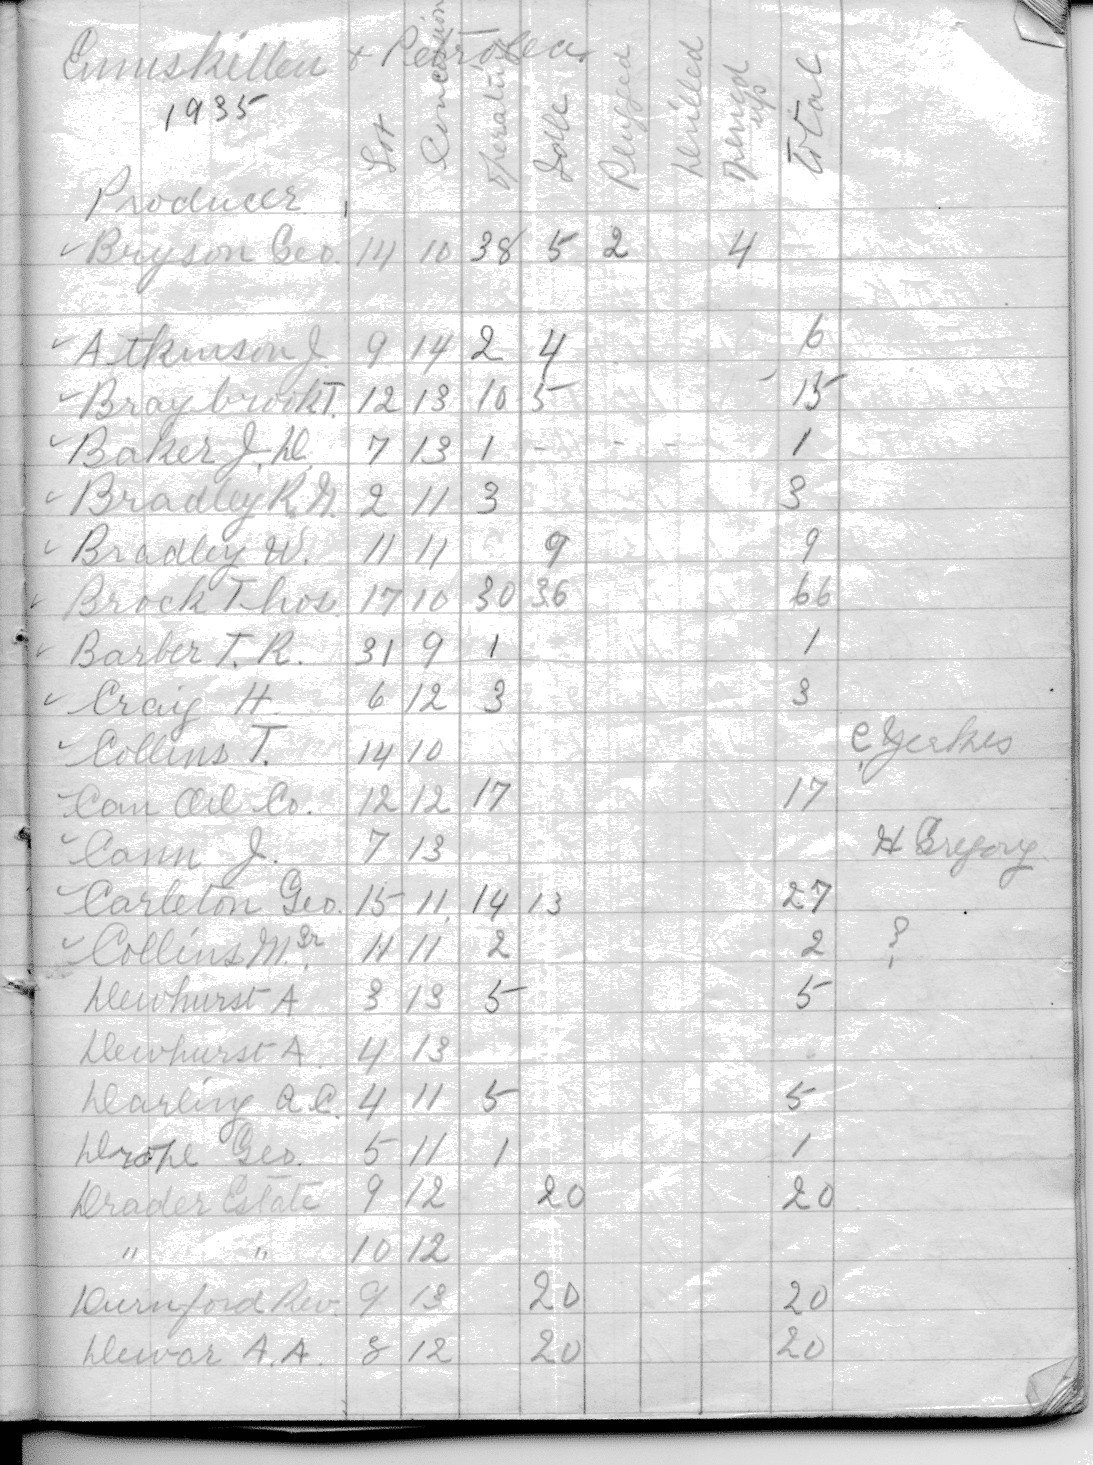 Enniskillen & Petrolea
1935
Producer Lot Concession Operating Idle Plugged Drilled Opened up Total
✓ Bryson Geo. 14 10 38 5 2 4
✓ Atkinson J 9 14 2 4 6
✓ Braybrook T. 12 13 10 5 - 15
✓ Baker J. D. 7 13 1 - - - 1
✓ Bradley R. G. 2 11 3 3
✓ Bradley W. 11 11 9 9
✓ Brock Thos. 17 10 30 36 66
✓ Barber T. R. 31 9 1 1
✓ Craig H. 6 12 3 3
✓ Collins T. 14 10 C. Yerkes
✓ Can Oil Co. 12 12 17 17
✓ Cann J. 7 13 H Gregory
✓ Carleton Geo. 15 11 14 13 27
✓ Collins M. Sr. 11 11 2 2 ?
Dewhurst A 3 13 5 5
Dewhurst A 4 13
Darling A. C. 4 11 5 5
Drope Geo. 5 11 1 1
Drader Estate 9 12 20 20
" " 10 12
Durnford Rev. 9 13 20 20
Dewar A. A. 8 12 20 20